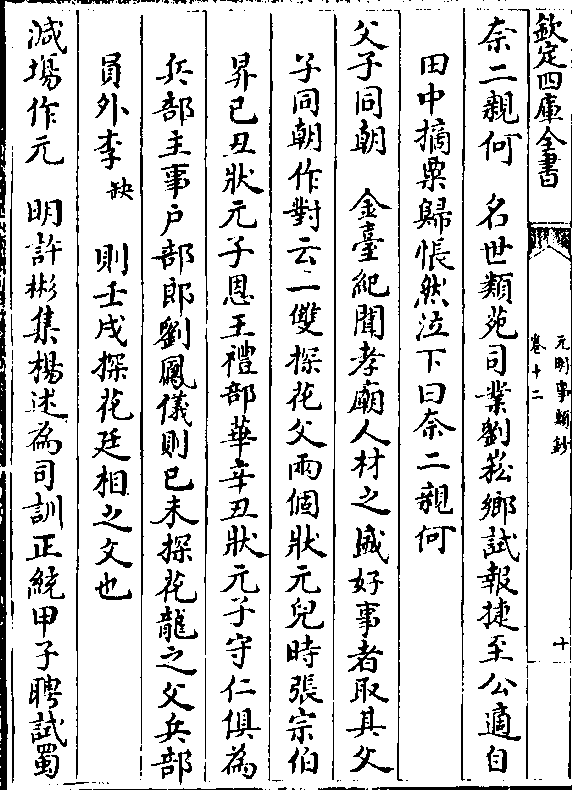 欽定四庫全書
元明事類鈔
卷十二
十
奈二親何　名世類苑司業劉崧鄉試報捷至公適自
田中摘粟歸悵然泣下曰奈二親何
父子同朝　金臺紀聞孝廟人材之盛好事者取其父
子同朝作對云一雙探花父兩個狀元兒時張宗伯
昇已丑狀元子恩王禮部華辛丑狀元子守仁俱為
兵部主事戶部郎劉鳳儀則已未探花龍之父兵部
員外李缺　則壬戌探花廷相之父也
減場作元　明許彬集楊述為司訓正統甲子聘試蜀